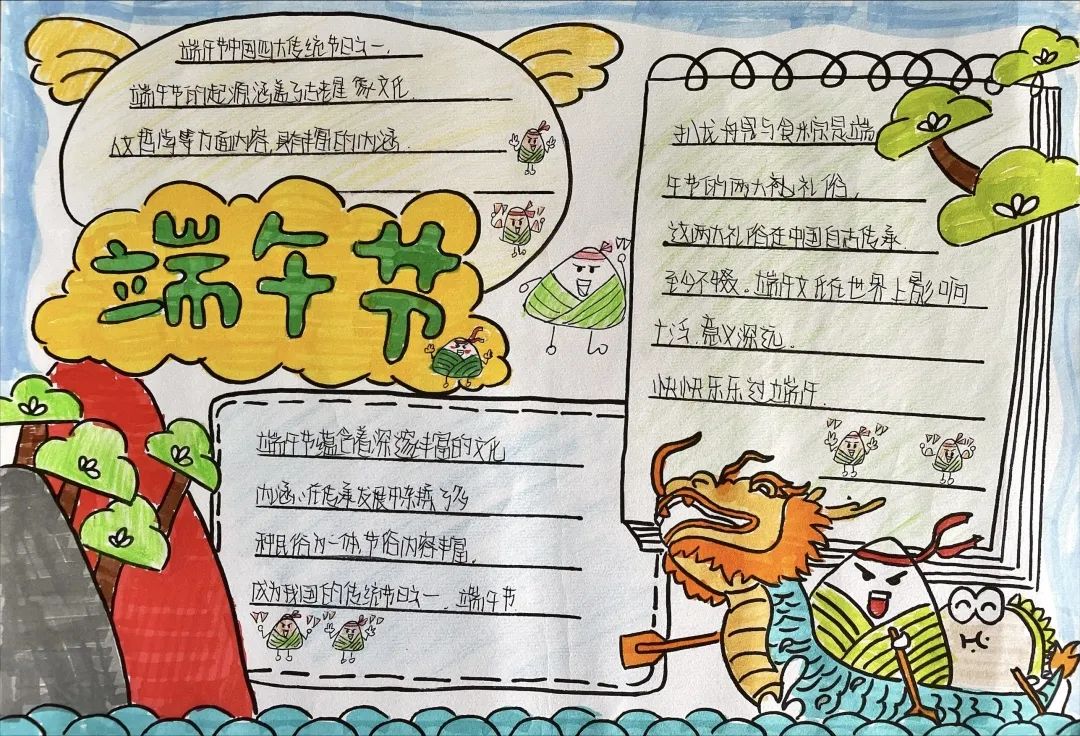 端午节中国四大传统节日之一,
端午节的起源涵盖了古老星象文化
人文哲学等方面内容,具有丰富的内涵
端午节
扒龙舟是与食米宗是端
午节的两大礼礼俗,
这两大礼俗在中国自古传承
至今不辍。端午文化在世界上影响
广泛.意义深远.
快快乐乐过端午.
端午节蕴含着深邃丰富的文化
内涵,在传承发展中杂揉了多
种民俗为一体,节俗内容丰富,
成为我国的传统节日之一,端午节